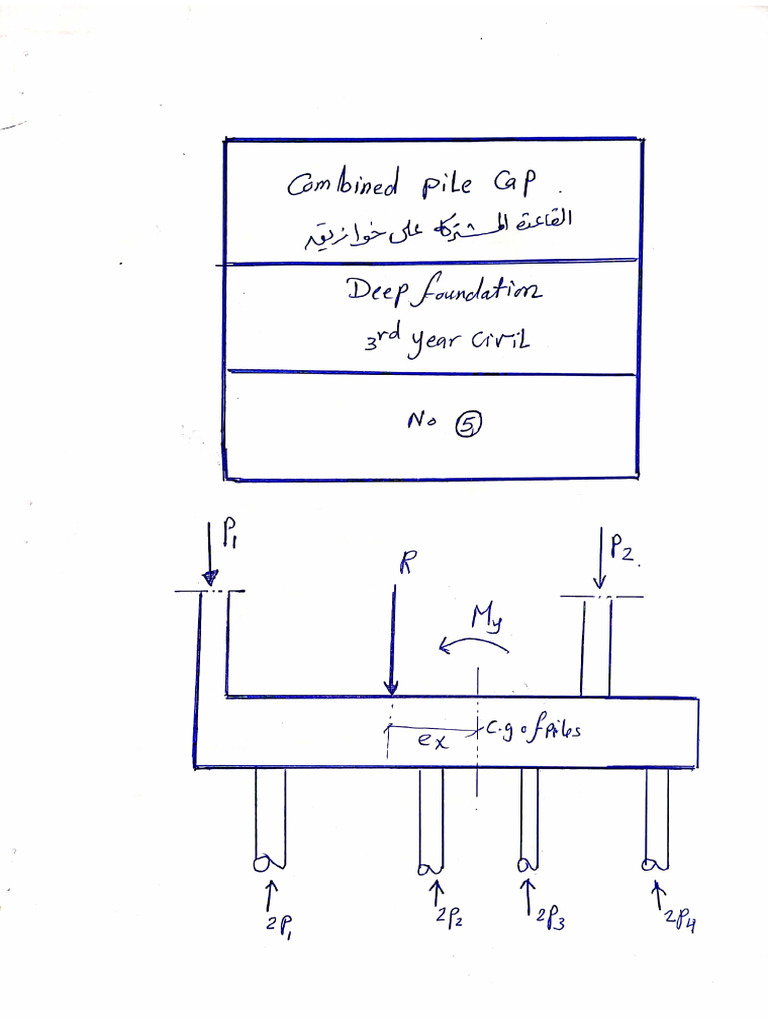 Combined pile cap.
القاعدة المشتركة على خوازيق
Deep foundation
3rd year civil
No 5
P1
P2.
R
My
ex
c.g of piles
2P1
2P2
2P3
2P4